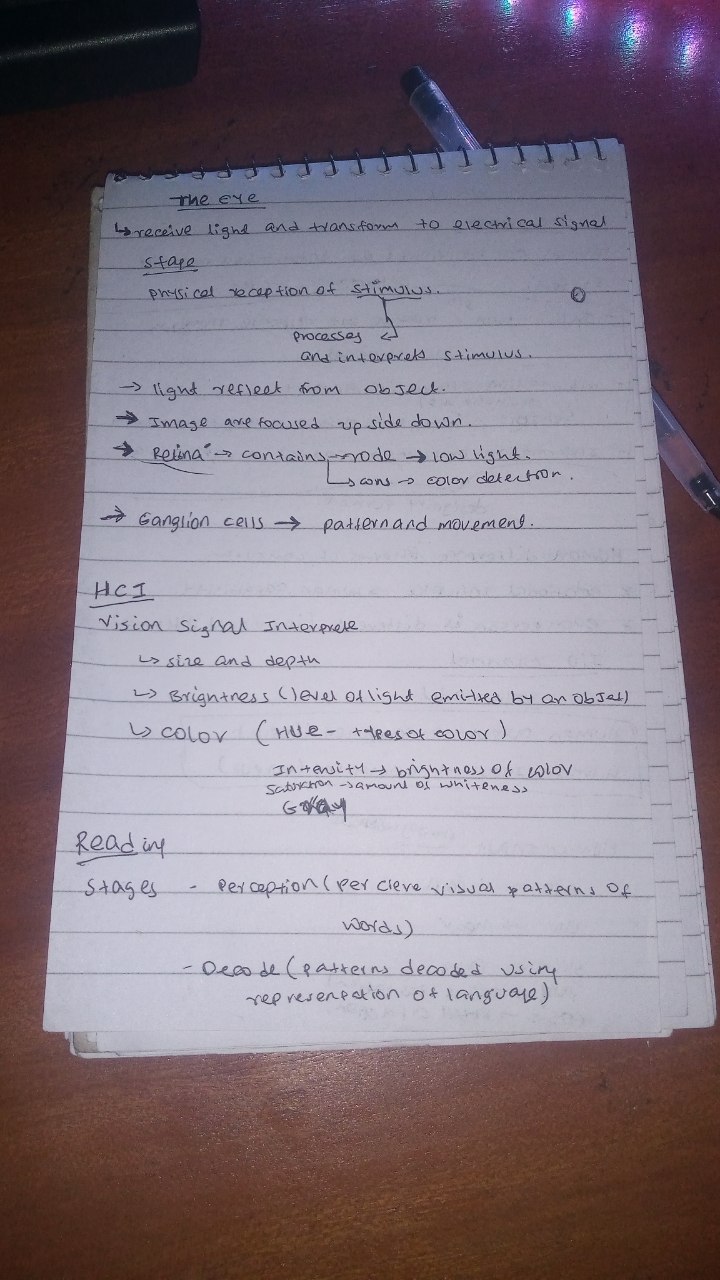 The eye
↳ receive light and transform to electrical signal
stage
physical reception of stimulus.
processes
and interprets stimulus.
→ light reflect from object.
→ Image are focused up side down.
→ Retina → contains rode → low light.
↳ cons → color detection.
→ Ganglion cells → pattern and movement.
HCI
Vision Signal Interprete
↳ size and depth
↳ Brightness (level of light emitted by an objet)
↳ color (HUE - types of color)
Intensity → brightness of color
Saturation → amount of whiteness
Reading
Stages - perception (percieve visual patterns of
words)
- Decode (patterns decoded using
representation of language)